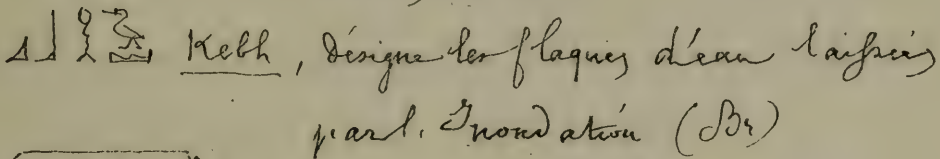 𓈎𓃀𓎛 Kebh, désigne les flaques d'eau laissées
par l'Inondation (Br)